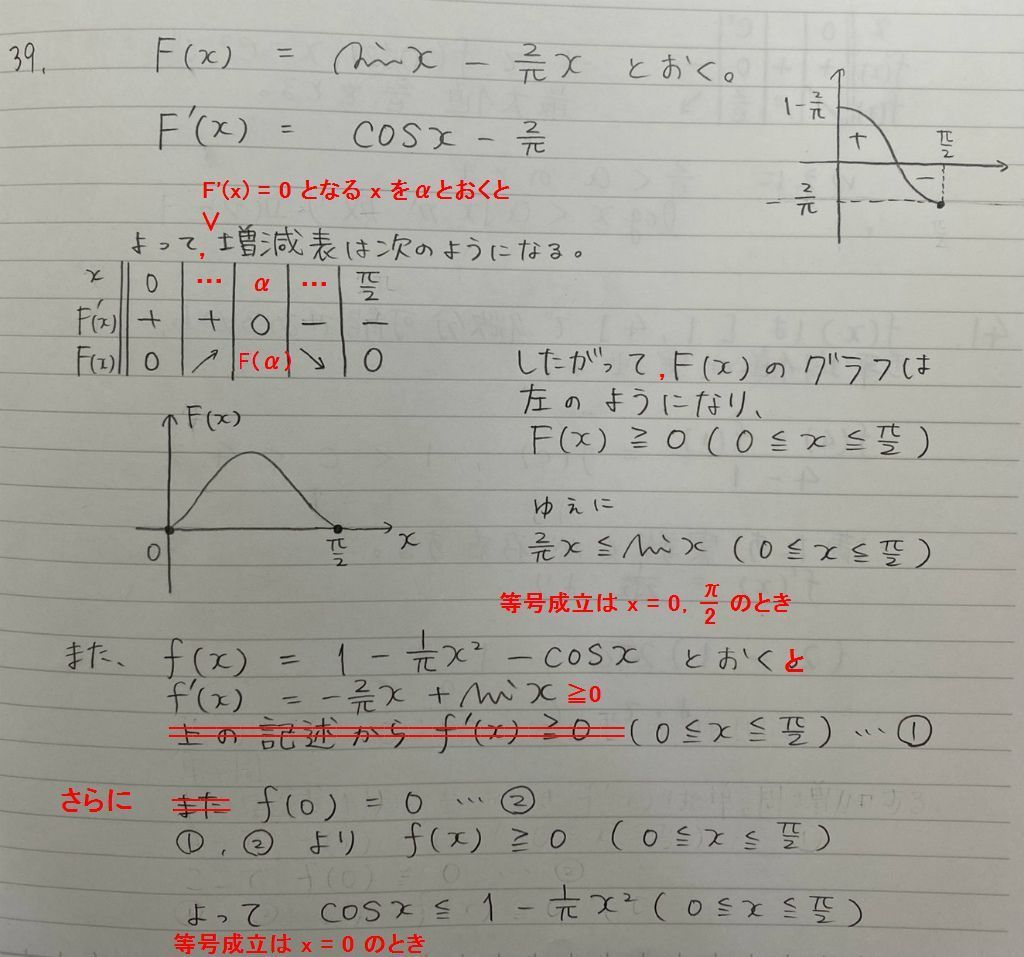 39. F(x) = sin x - 2/π x とおく。
F'(x) = cos x - 2/π
1 - 2/π
+
π/2
-
- 2/π
F'(x) = 0 となる x を αとおくと
よって, 増減表は次のようになる。
x 0 … α … π/2
F'(x) + + 0 - -
F(x) 0 ↗ F(α) ↘ 0
F(x)
0 π/2 x
したがって, F(x) のグラフは
左のようになり、
F(x) ≧ 0 ( 0 ≦ x ≦ π/2 )
ゆえに
2/π x ≦ sin x ( 0 ≦ x ≦ π/2 )
等号成立は x = 0, π/2 のとき
また、 f(x) = 1 - 1/π x² - cos x とおくと
f'(x) = - 2/π x + sin x ≧0
上の記述から f'(x) ≧ 0 ( 0 ≦ x ≦ π/2 ) … ①
さらに また f(0) = 0 … ②
①, ② より f(x) ≧ 0 ( 0 ≦ x ≦ π/2 )
よって cos x ≦ 1 - 1/π x² ( 0 ≦ x ≦ π/2 )
等号成立は x = 0 のとき